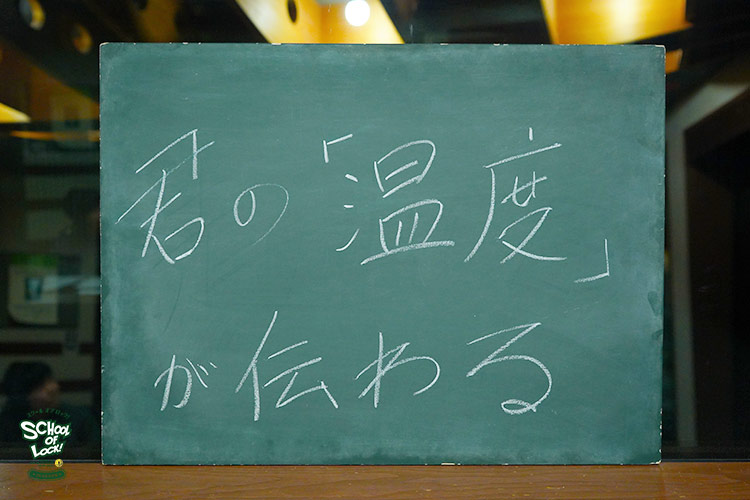 君の「温度」
が伝わる
SCHOOL
OF
LOCK!